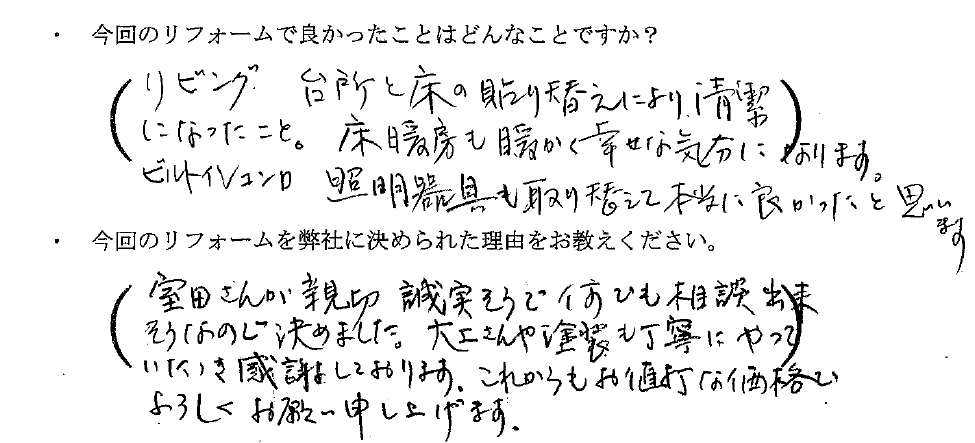 ・ 今回のリフォームで良かったことはどんなことですか？
(リビング 台所と床の貼り替えにより清潔)
になったこと。床暖房も暖かく幸せな気分になります。
ビルトインコンロ 照明器具も取り替えて本当に良かったと思います
・ 今回のリフォームを弊社に決められた理由をお教えください。
(室田さんが親切 誠実そうで何でも相談出来
そうなので決めました。大工さんや塗装も丁寧にやって)
いただき感謝しております。これからもお値打な価格で
よろしくお願い申し上げます。